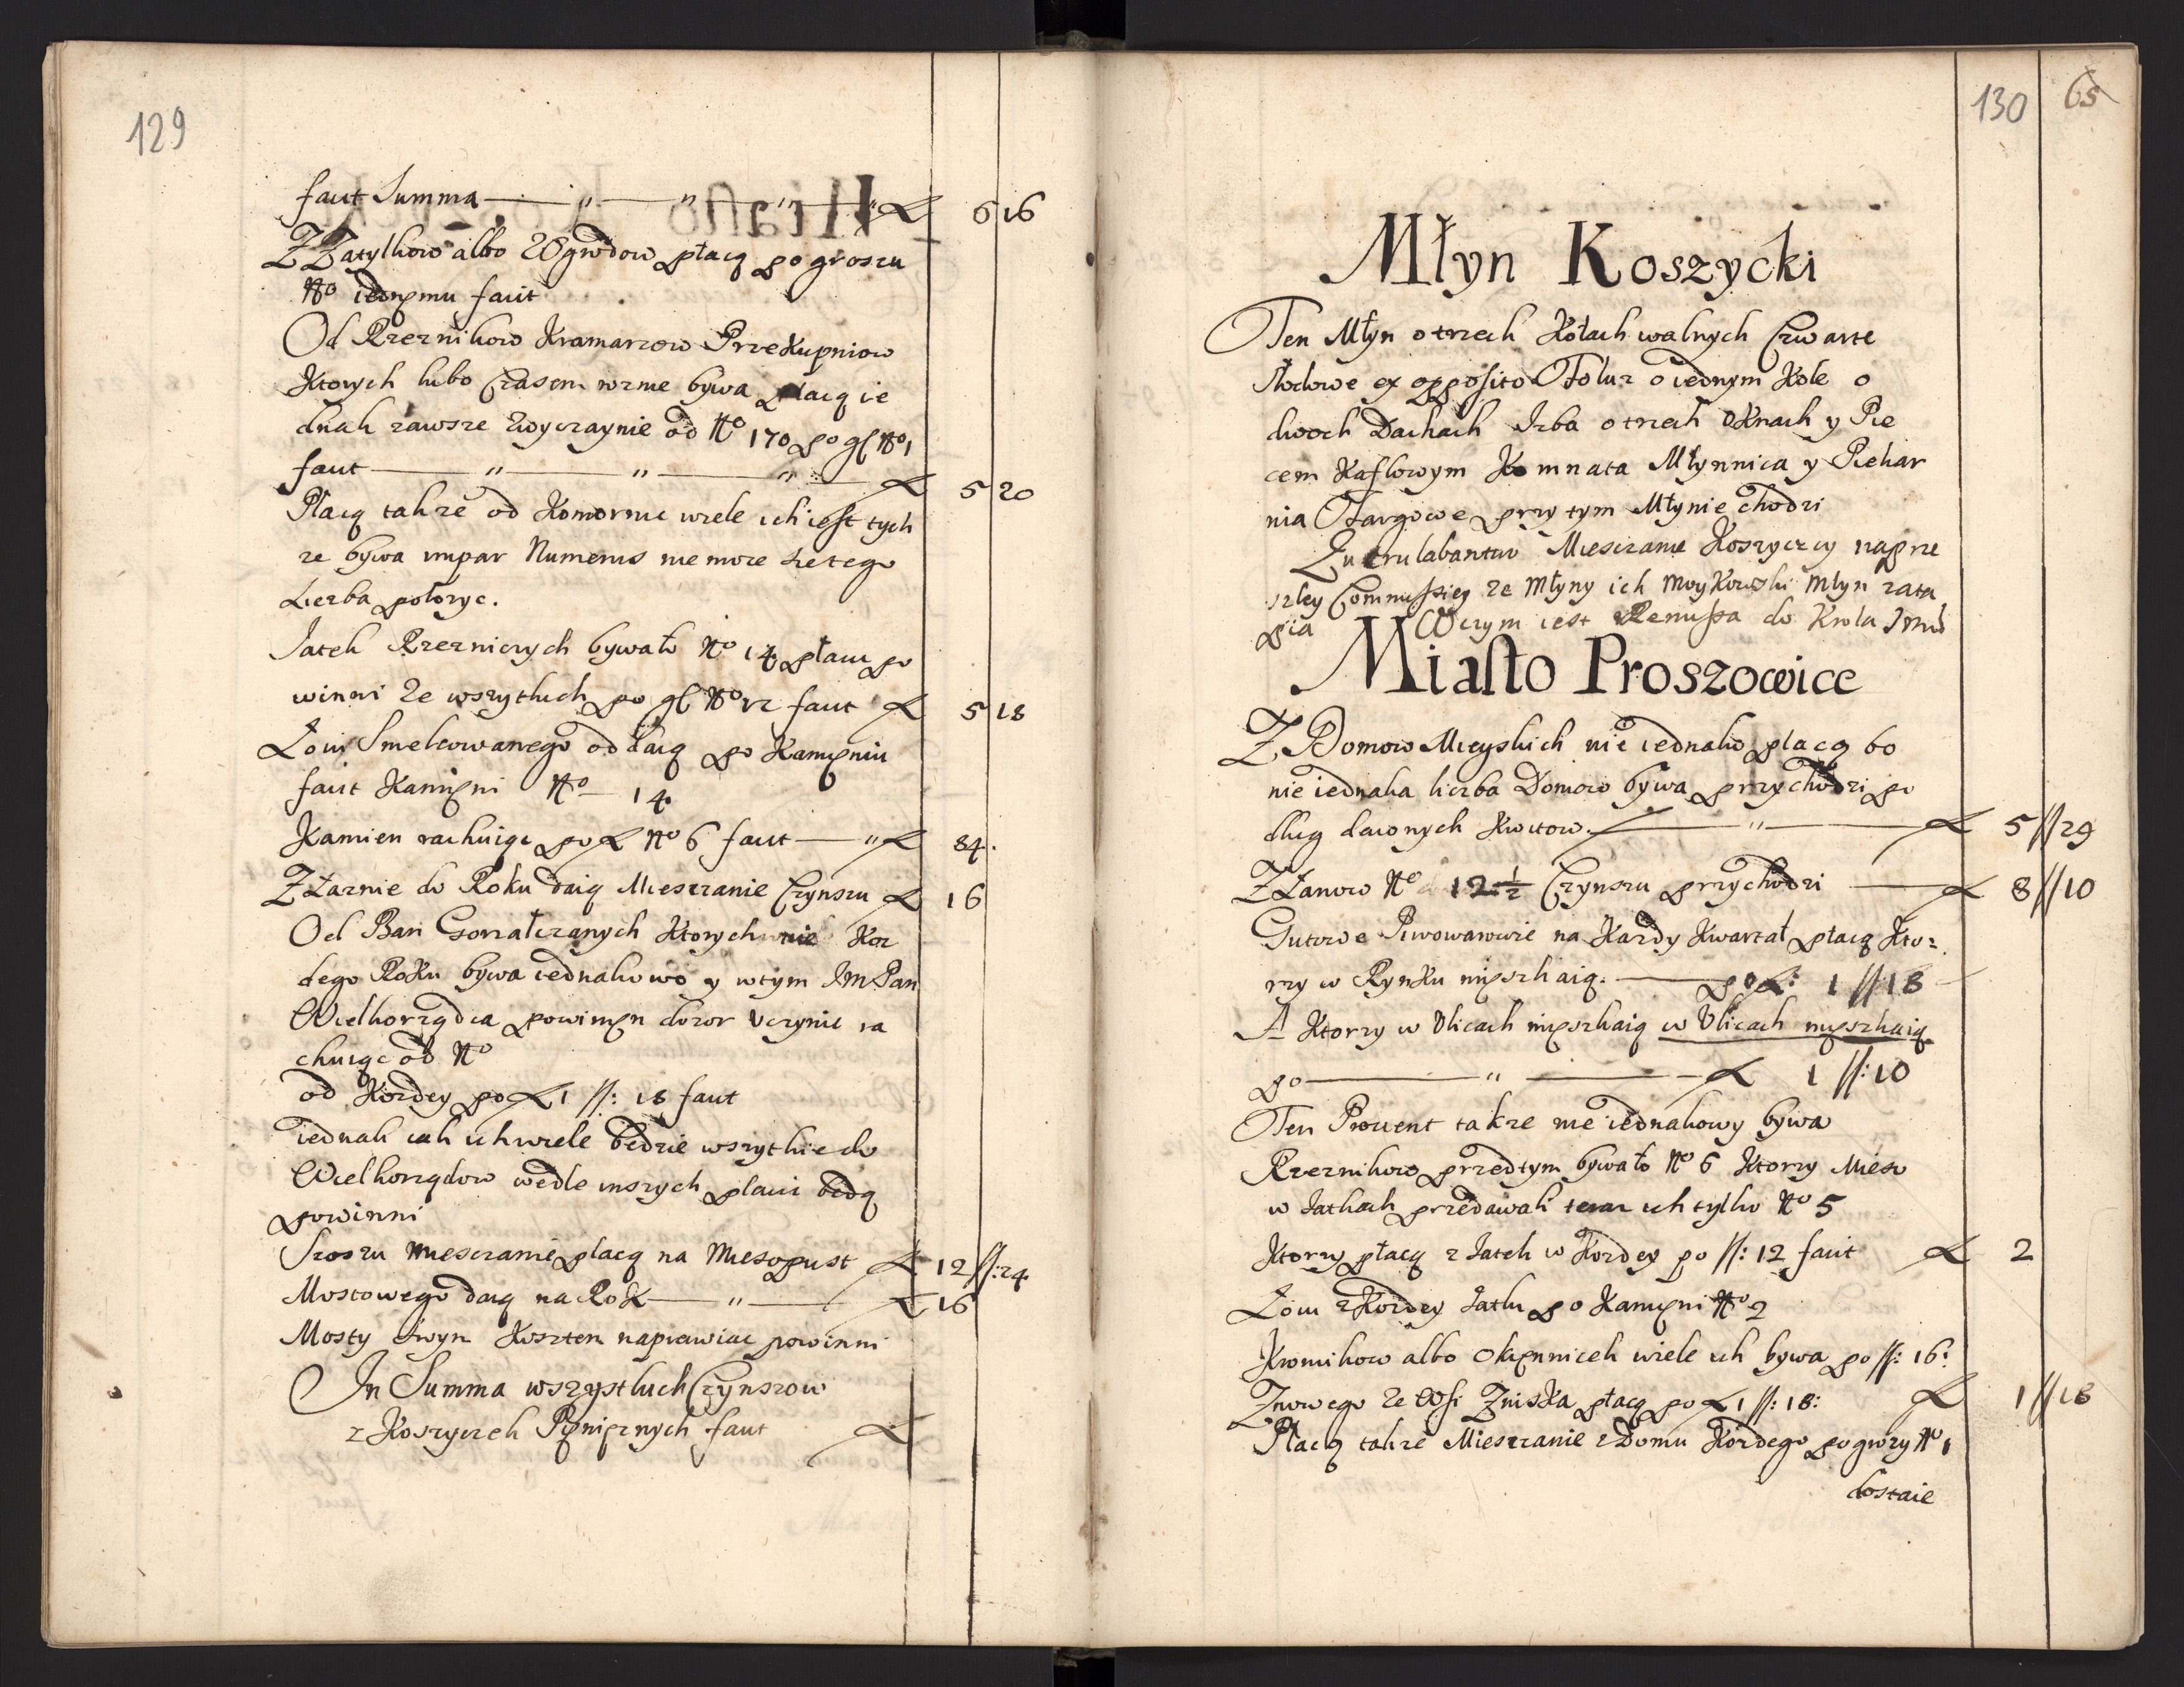 129
facit Summa — " — " — " — " 6 16
Z Zatylkow albo z Ogrodow płacą po groszu
No iednemu facit
Od Rzeznikow Kramarzow Przekupniow
Ktorych lubo czasem wzrne bywa płacą ie
dnak zawsze zwyczaynie od No 170 po gl No 1
facit — " — " — " — 5 20
Płacą takze od Komornic wiele ich iest tych
ze bywa impar Numerus nie moze sie tego
Liczba połozyc.
Jatek Rzezniczych bywało No 14 płacic po
winni ze wszytkich po gl No 12 facit 5 18
Łoiu Smelcowanego oddaią po Kamieniu
facit Kamieni No — 14
Kamien rachuiąc po No 6 facit — " 84.
Z Łaznie do Roku daią Miesczanie Czynszu 16
Od Bań Gorzałczanych Ktorych nie Koz
dego Roku bywa iednakowo y w tym Jm Pan
Wielkorządca powinien dozor uczynic ra
chuiąc od No
od Kozdey po 1 ff: 18 facit
iednak iak ich wiele będzie wszytkie do
Wielkorządow wedle inszych płacic będą
powinni
Szoszu Miesczanie płacą na Miesopust 12 ff: 24
Mostowego daią na Rok — " — 16
Mosty swym Kosztem naprawiac powinni
In Summa wszystkich Czynszow
z Koszyczek Pieniężnych facit
130 65
Młyn Koszycki
Ten Młyn o trzech Kołach walnych Czwarte
Słodowe ex opposito Folusz o iednym Kole o
dwoch Dachach Izba o trzech Oknach y Pie
cem Kaflowym Komnata Młynnica y Piekar
nia Targowe przy tym Młynie chodzi
Querulabantur Miesczanie Koszyczcy na prze
szley Commissiey ze Młyny ich Moykowski Młyn zata
pia W czym iest Remissa do Krola Jmci
Miasto Proszowice
Z Domow Mieyskich nie iednako płacą bo
nie iednaka liczba Domow bywa przychodzi po
dług dawnych Kwitow. — " — 5 ff 29
Z Łanow No 12 1/2 Czynszu przychodzi — 8 ff 10
Gutowe Piwowarowie na Kazdy Kwartał płacą Kto=
rzy w Rynku mieszkaią. — po: 1 ff 18 —
A Ktorzy w Ulicach mieszkaią w Ulicach mieszkaią
po — " — 1 ff: 10
Ten Prowent takze nie iednakowy bywa
Rzeznikow przedtym bywało No 6 Ktorzy Mieso
w Jatkach przedawali teraz ich tylko No 5
Ktorzy płacą z Jatek w Kozdey po ff: 12 facit 2
Łoiu z Kozdey Jatki po Kamieni No 2
Kromikow albo Okienniczek wiele ich bywa po ff: 16:
Znowego ze Wsi Zniska płacą po 1 ff: 18: 1 ff 18
Płacą takze Miesczanie z Domu Kozdego po groszy No 1
dostaie